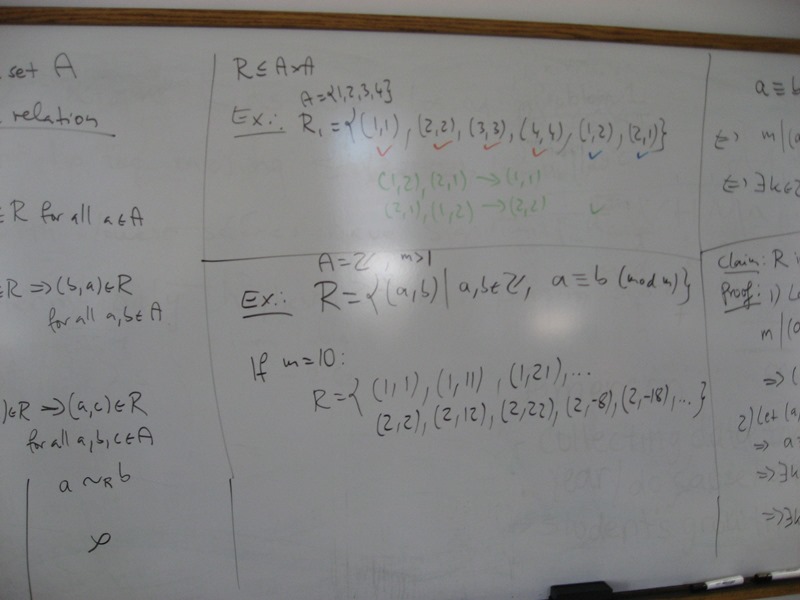 set A
relation
∈R for all a∈A
∈R ⇒(b,a)∈R
for all a,b∈A
)∈R ⇒(a,c)∈R
for all a,b,c∈A
a ~R b
R ⊆ A×A
A={1,2,3,4}
Ex.: R₁={(1,1), (2,2), (3,3), (4,4), (1,2), (2,1)}
✓ ✓ ✓ ✓ ✓ ✓
(1,2),(2,1) →(1,1)
(2,1),(1,2) →(2,2) ✓
A=ℤ, m>1
Ex.: R={(a,b)| a,b∈ℤ, a≡b (mod m)}
If m=10:
R={(1,1), (1,11), (1,21),...
(2,2), (2,12), (2,22), (2,-8), (2,-18),...}
a≡b
⇔ m|(a
⇔ ∃k∈ℤ
Claim: R i
Proof: 1) Le
m|(a
⇒ (
2) Let (a,
⇒ a=
⇒ ∃k
⇒ ∃k